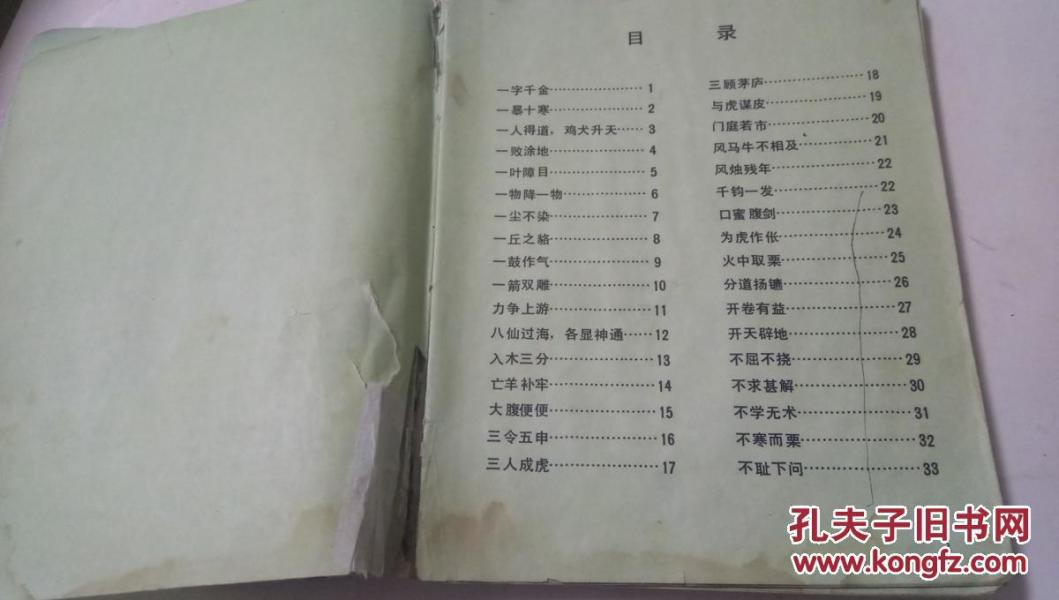 目 录
一字千金 1
一暴十寒 2
一人得道，鸡犬升天 3
一败涂地 4
一叶障目 5
一物降一物 6
一尘不染 7
一丘之貉 8
一鼓作气 9
一箭双雕 10
力争上游 11
八仙过海，各显神通 12
入木三分 13
亡羊补牢 14
大腹便便 15
三令五申 16
三人成虎 17
三顾茅庐 18
与虎谋皮 19
门庭若市 20
风马牛不相及 21
风烛残年 22
千钧一发 22
口蜜腹剑 23
为虎作伥 24
火中取栗 25
分道扬镳 26
开卷有益 27
开天辟地 28
不屈不挠 29
不求甚解 30
不学无术 31
不寒而栗 32
不耻下问 33
孔夫子旧书网
www.kongfz.com